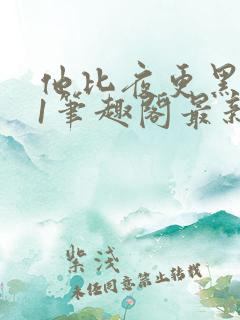 他比夜更黑
1笔趣阁最系
紫浅
未经同意禁止转载